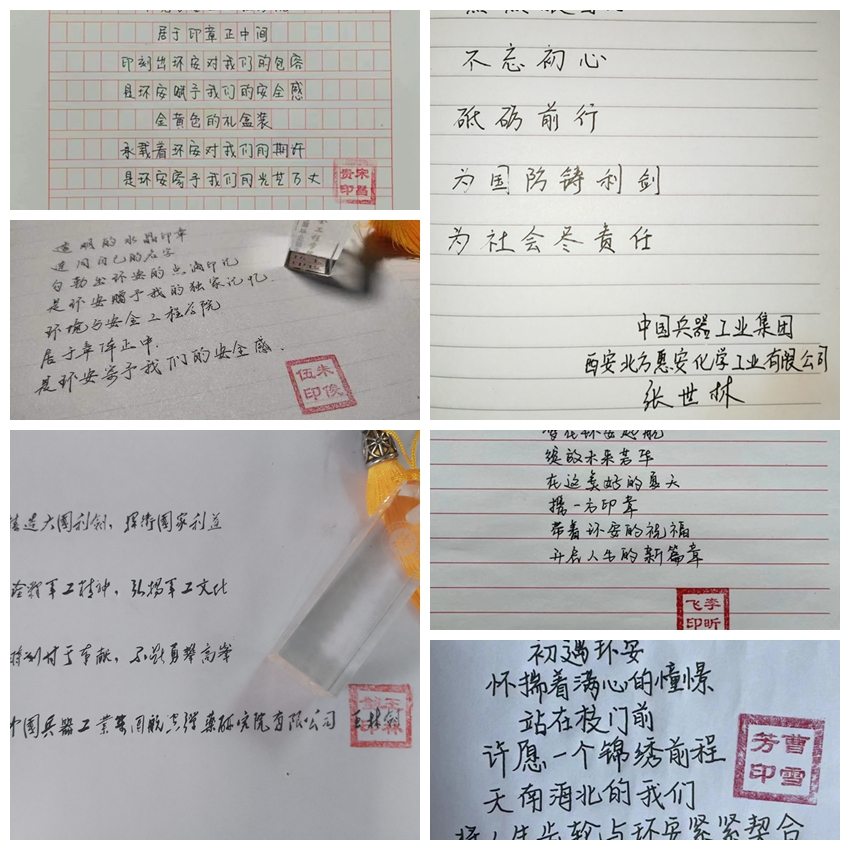 居于印章正中间
印刻出环安对我们的包容
是环安赋予我们的安全感
金黄色的礼盒装
承载着环安对我们的期许
是环安寄予我们的光芒万丈
宋昌贵印
不忘初心
砥砺前行
为国防铸利剑
为社会尽责任
中国兵器工业集团
西安北方惠安化学工业有限公司
张世林
透明的水晶印章
是环安赠予我的独家记忆
环境与安全工程学院
居于章体正中
是环安寄予我们的安全感
朱俊伍印
大国利剑，捍卫国家利益
军工精神，弘扬军工文化
甘于奉献，不畏勇攀高峰
绽放未来芳华
在这美好的夏天
携一方印章
带着环安的祝福
开启人生的新篇章
李昕飞印
初遇环安
怀揣着满心的憧憬
站在校门前
许愿一个锦绣前程
天南海北的我们
曹雪芳印
与环安紧紧契合